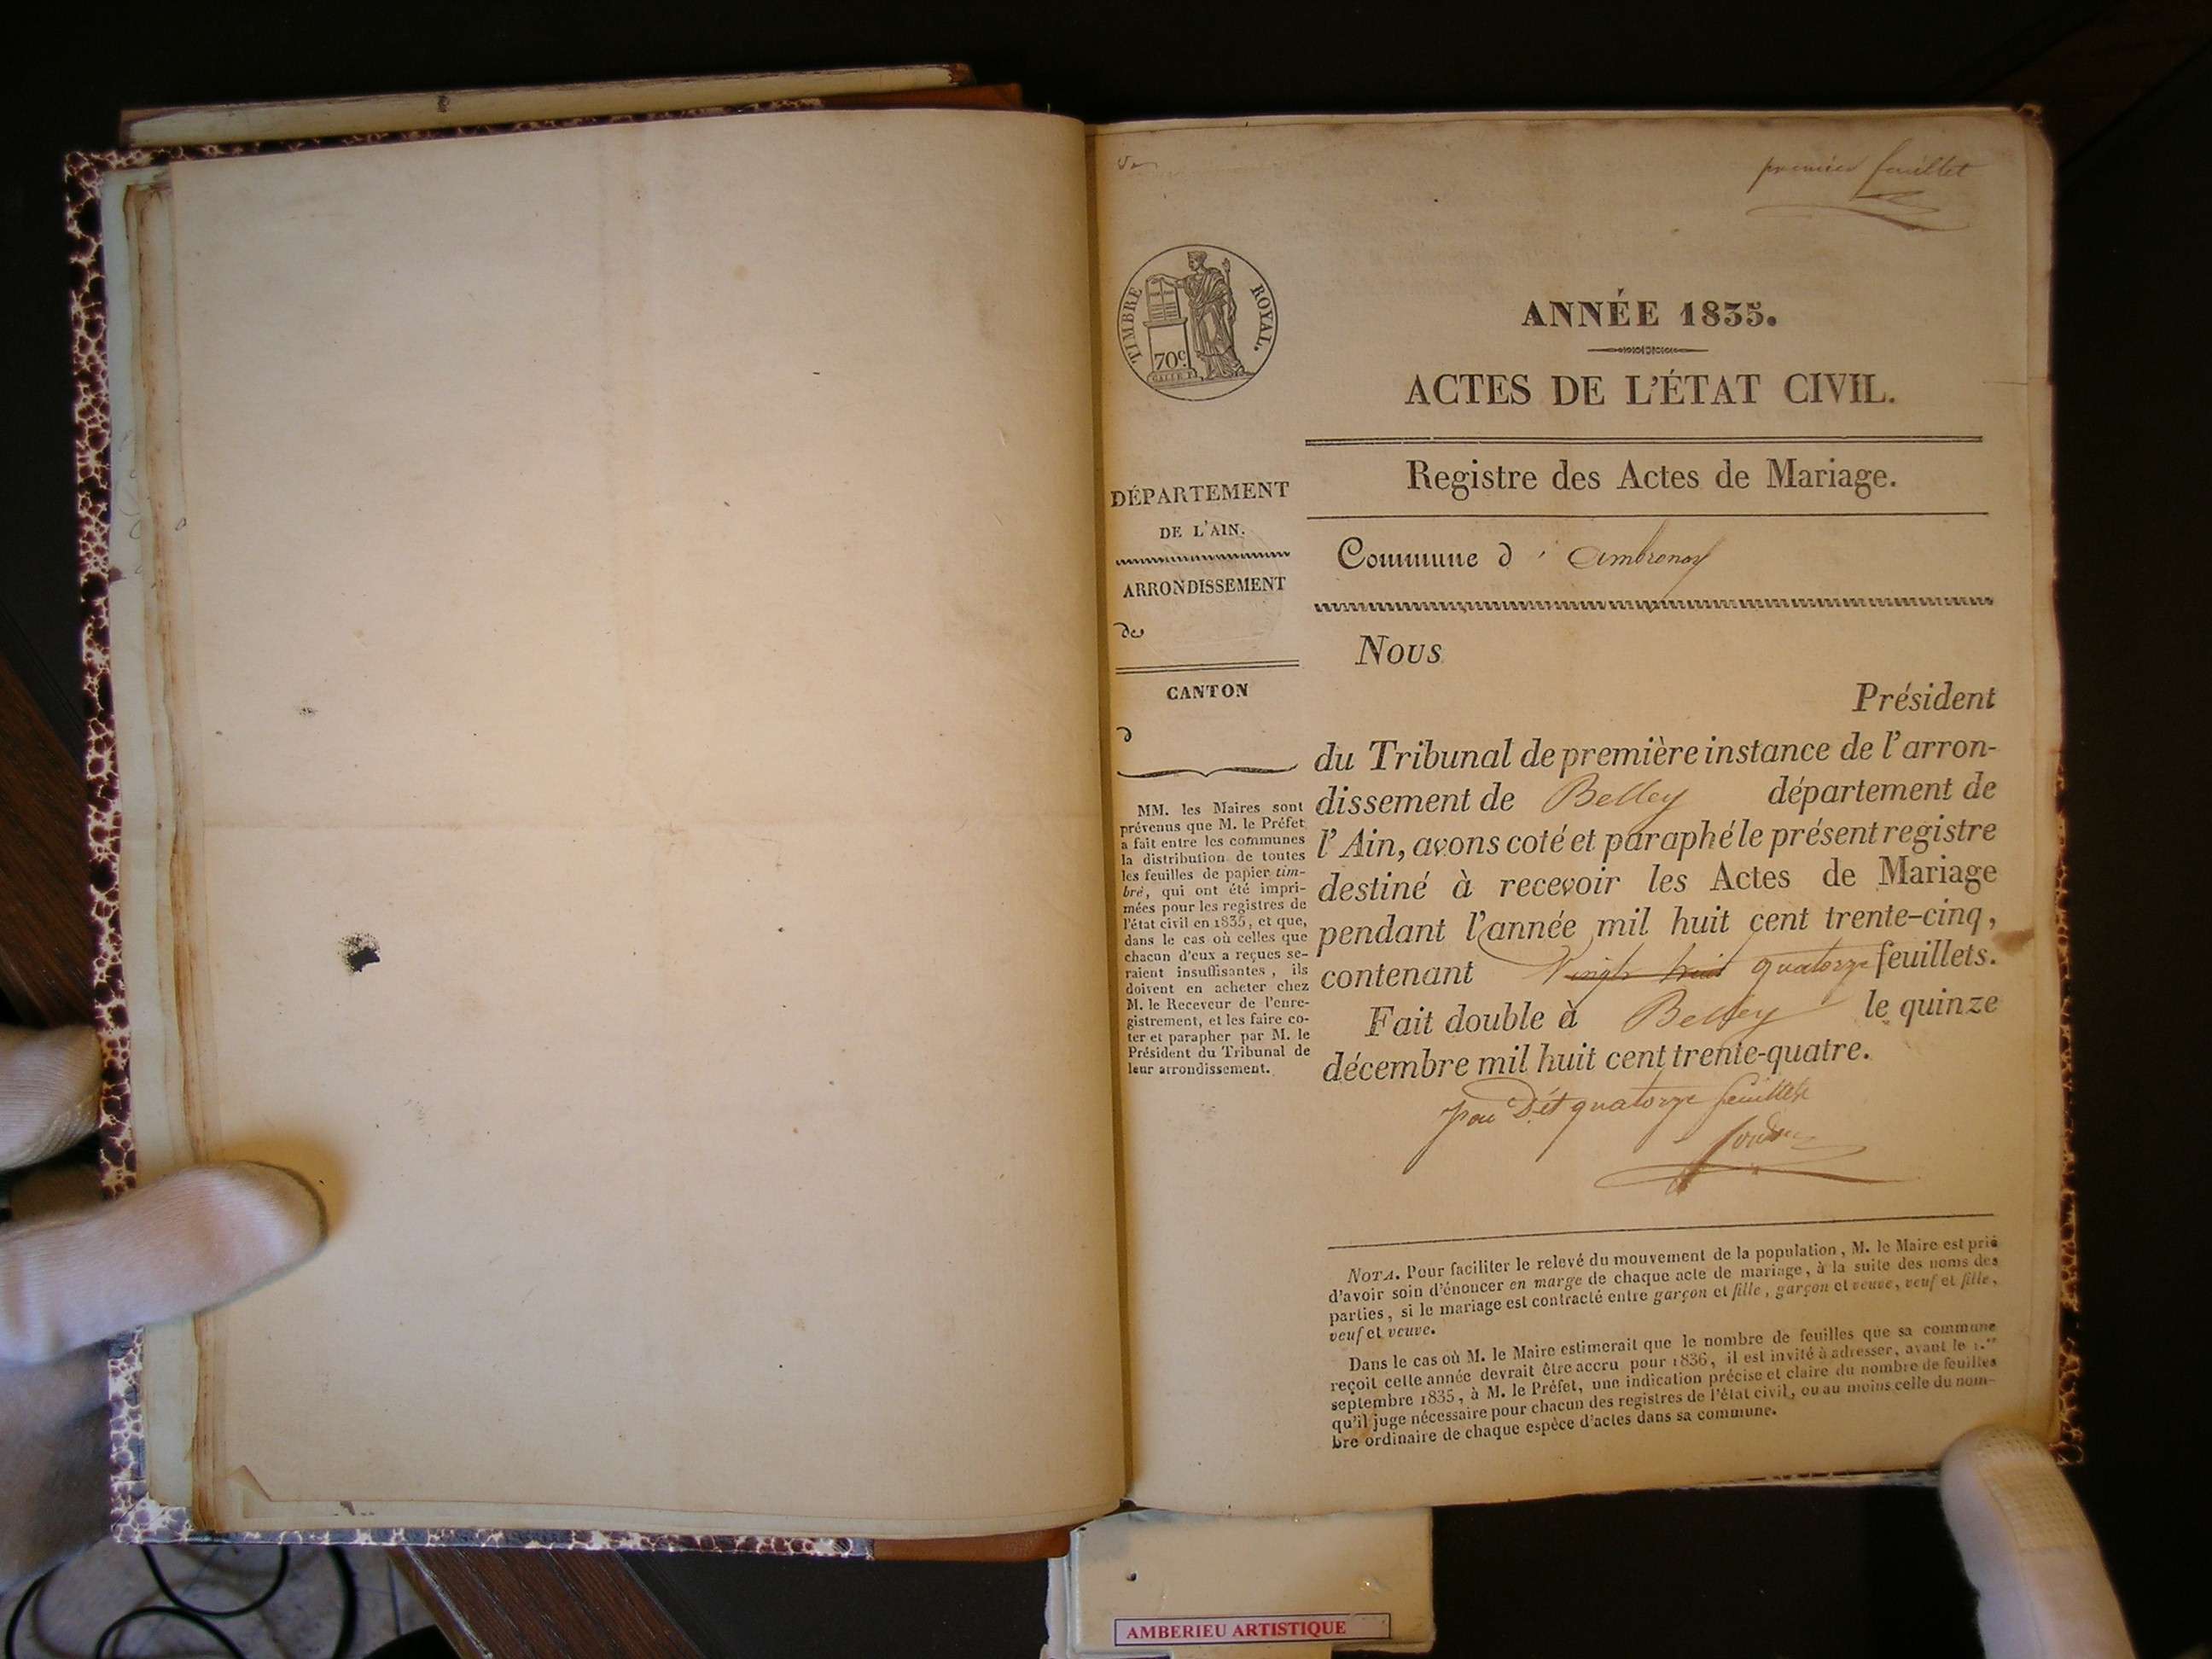 premier feuillet
TIMBRE ROYAL.
70c.
ANNÉE 1835.
ACTES DE L'ÉTAT CIVIL.
Registre des Actes de Mariage.
Commune d' ambronay
DÉPARTEMENT
DE L'AIN.
ARRONDISSEMENT
de
CANTON
d
MM. les Maires sont
prévenus que M. le Préfet
a fait entre les communes
la distribution de toutes
les feuilles de papier tim-
bré, qui ont été impri-
mées pour les registres de
l'état civil en 1835, et que,
dans le cas où celles que
chacun d'eux a reçues se-
raient insuffisantes, ils
doivent en acheter chez
M. le Receveur de l'enre-
gistrement, et les faire co-
ter et parapher par M. le
Président du Tribunal de
leur arrondissement.
Nous
Président
du Tribunal de première instance de l'arron-
dissement de Belley département de
l'Ain, avons coté et paraphé le présent registre
destiné à recevoir les Actes de Mariage
pendant l'année mil huit cent trente-cinq,
contenant Vingt huit quatorze feuillets.
Fait double à Belley le quinze
décembre mil huit cent trente-quatre.
quatorze feuillets
NOTA. Pour faciliter le relevé du mouvement de la population, M. le Maire est prié
d'avoir soin d'énoncer en marge de chaque acte de mariage, à la suite des noms des
parties, si le mariage est contracté entre garçon et fille, garçon et veuve, veuf et fille,
veuf et veuve.
Dans le cas où M. le Maire estimerait que le nombre de feuilles que sa commune
reçoit cette année devrait être accru pour 1836, il est invité à adresser, avant le 1.er
septembre 1835, à M. le Préfet, une indication précise et claire du nombre de feuilles
qu'il juge nécessaire pour chacun des registres de l'état civil, ou au moins celle du nom-
bre ordinaire de chaque espèce d'actes dans sa commune.
AMBERIEU ARTISTIQUE